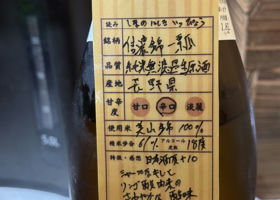 読み しなのにしき いっぴょう
銘柄 信濃錦 一瓢
品質 純米無濾過生原酒
産地 長野県
甘辛度 甘口 辛口 淡麗
使用米 美山錦 100%
精米歩合 61% アルコール度数 18度
特徴・感想 日本酒度+10
シャープな辛さと
リンゴ酸由来の
さわやかな